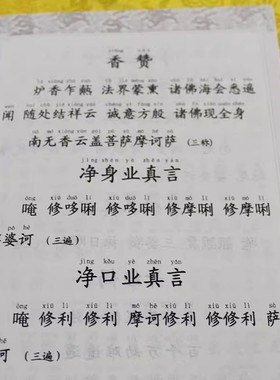 xiāng zàn
香赞
炉香乍爇 法界蒙熏 诸佛海会悉遥
闻 随处结祥云 诚意方殷 诸佛现全身
南无香云盖菩萨摩诃萨（三称）
jìng shēn yè zhēn yán
净身业真言
ōng xiū duō lì xiū duō lì xiū mó lì xiū mó lì
唵 修哆唎 修哆唎 修摩唎 修摩唎
pó hē
婆诃（三遍）
jìng kǒu yè zhēn yán
净口业真言
ōng xiū lì xiū lì mó hē xiū lì xiū xiū lì sà
唵 修利 修利 摩诃修利 修修利 萨
（三遍）